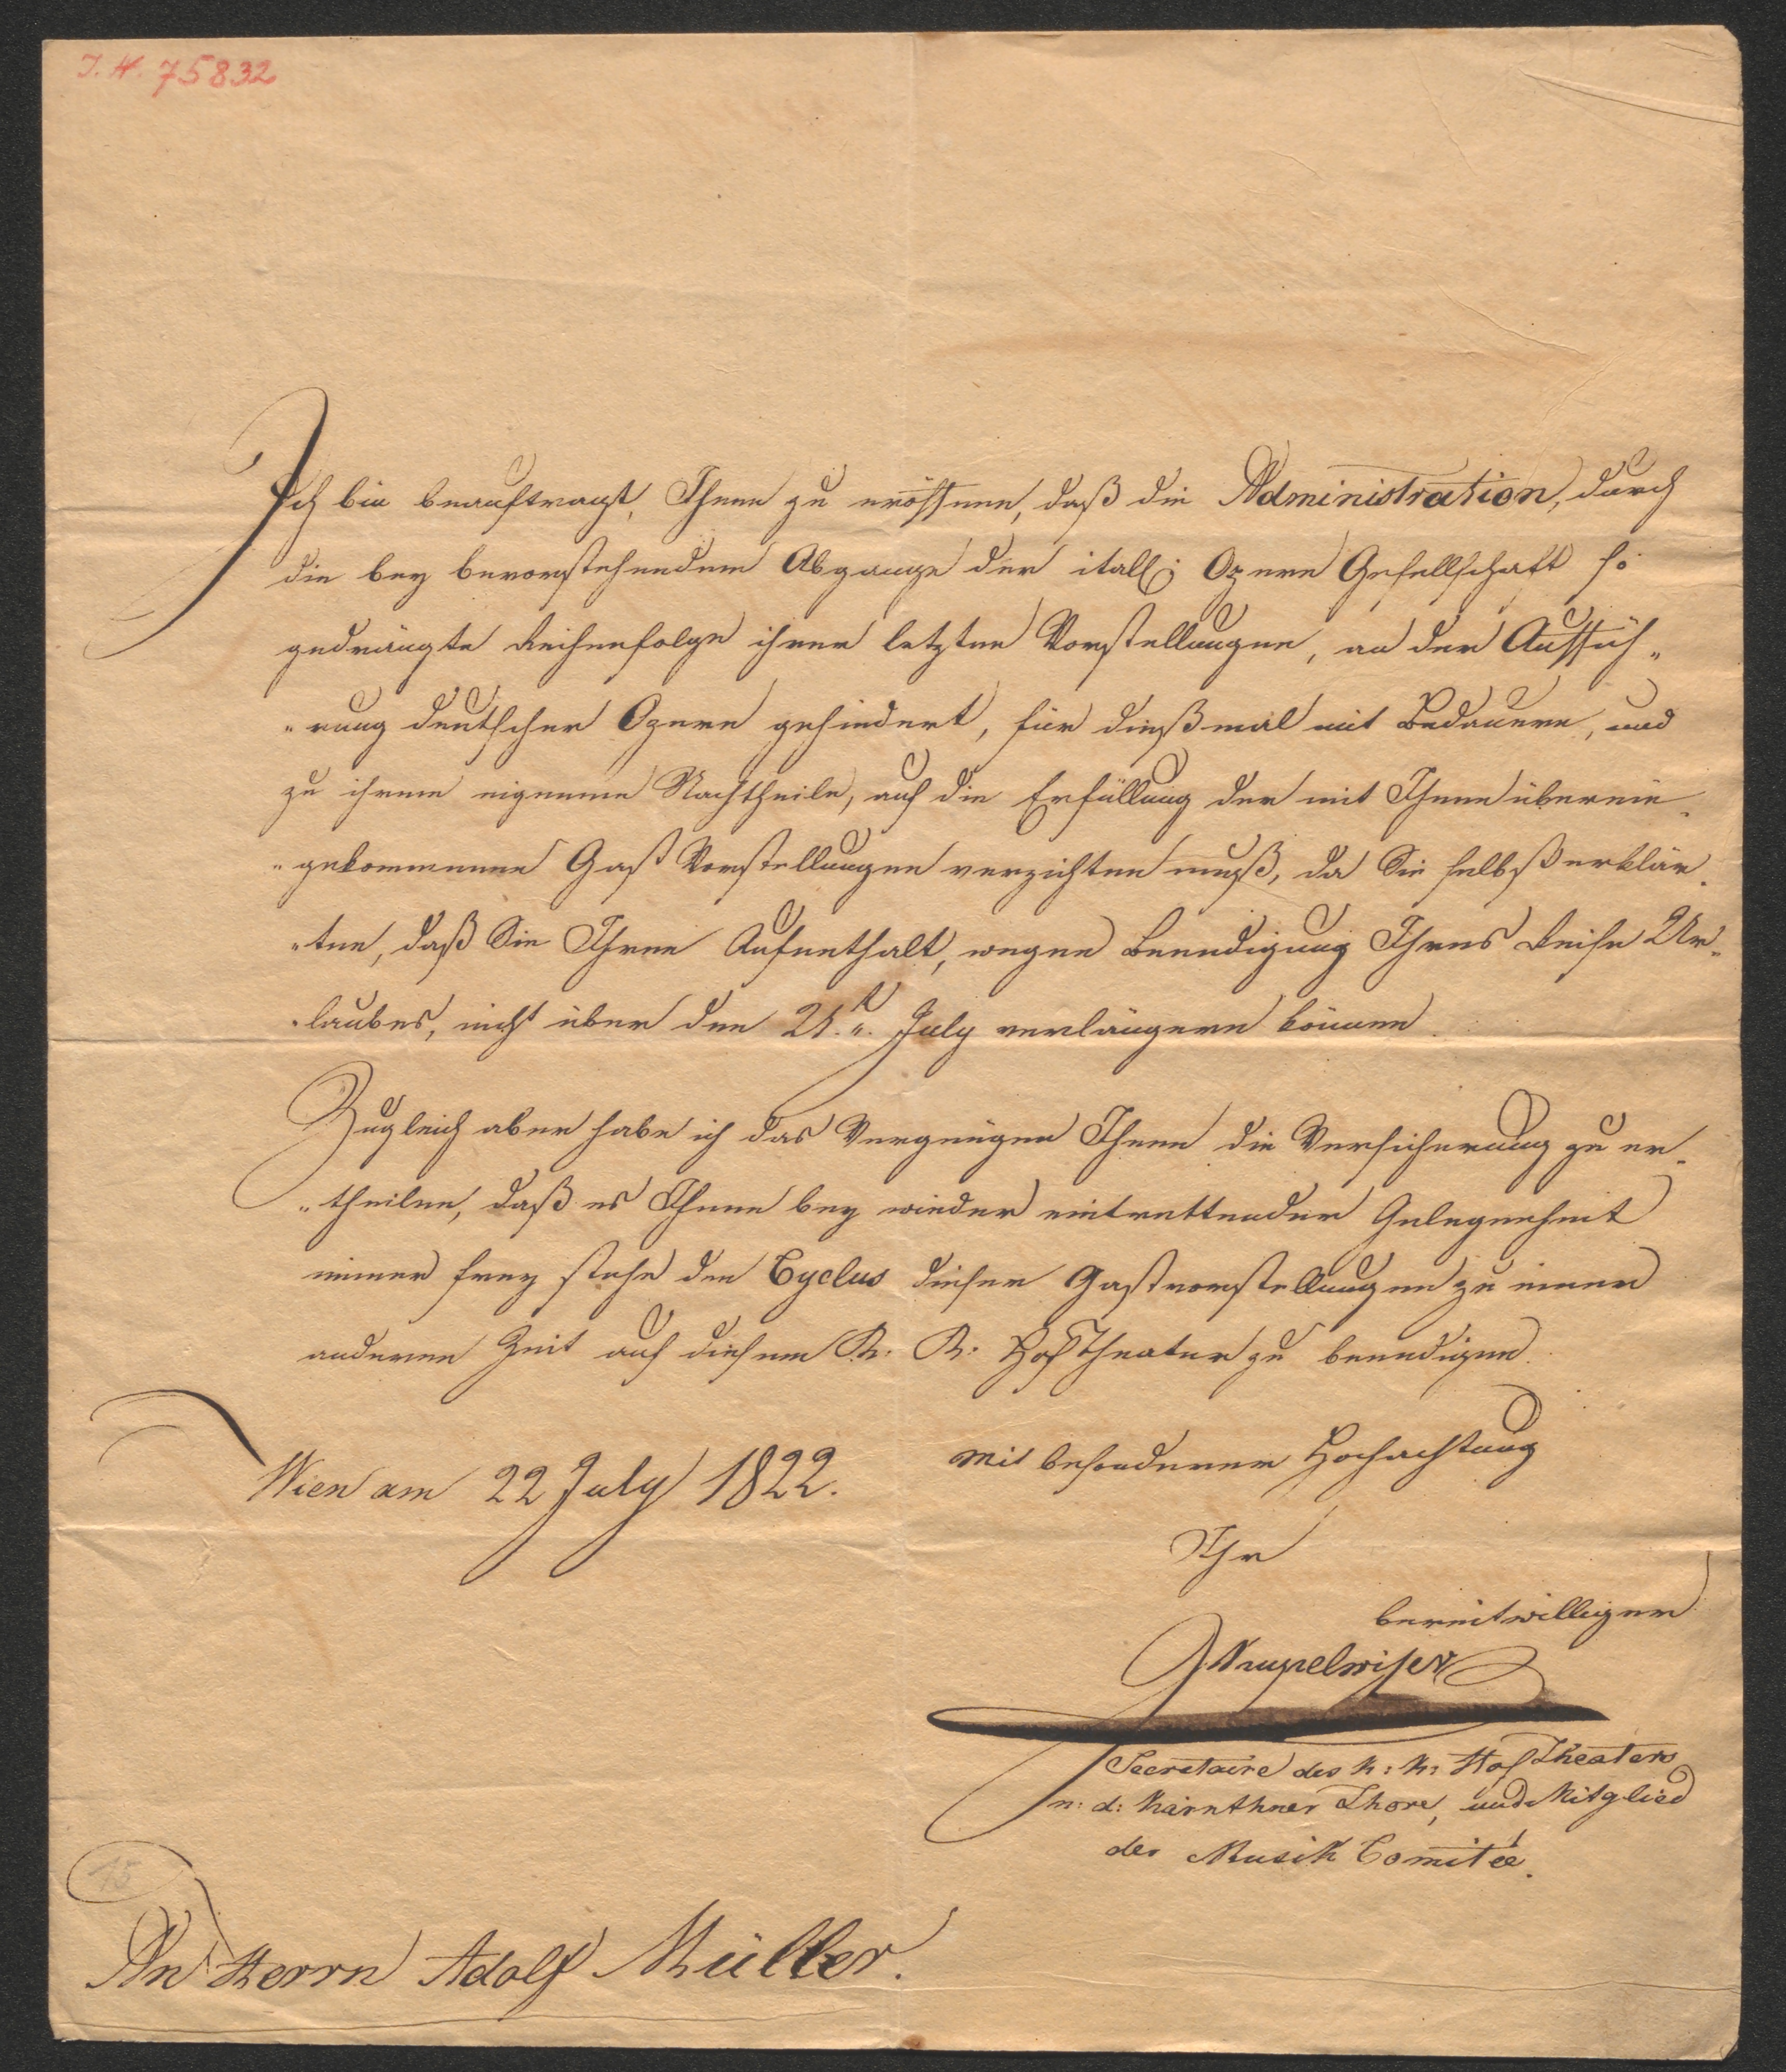 I. N. 75832
Ich bin beauftragt, Ihnen zu eröffnen, daß die Administration, durch
die bey bevorstehendem Abgange der itall: Opern Gesellschaft so
gedrängte Reihenfolge ihrer letzten Vorstellungen, an der Auffüh„
„rung deutscher Opern gehindert, für dießmal mit Bedauern, und
zu ihrem eigenem Nachtheile, auf die Erfüllung der mit Ihnen überein„
„gekommenen Gast Vorstellungen verzichten muß, da Sie selbst erklär„
„ten, daß Sie Ihren Aufenthalt, wegen Beendigung Ihres Reise Ur„
„laubes, nicht über den July verlängern können.
Zugleich aber habe ich das Vergnügen Ihnen die Versicherung zu er„
„theilen, daß es Ihnen bey wieder eintrettender Gelegenheit
immer frey stehe den Cyclus dieser Gastvorstellungen zu einer
anderen Zeit auf diesem K: K: Hof Theater zu beendigen.
Mit besonderer Hochachtung
Wien am 22 July 1822.
Ihr
bereitwilliger
J. Kupelwiser
Secretaire des k: k: Hof Theaters
n: d: Kärnthner Thore, und Mitglied
des Musik Comitée.
15
An Herrn Adolf Müller.